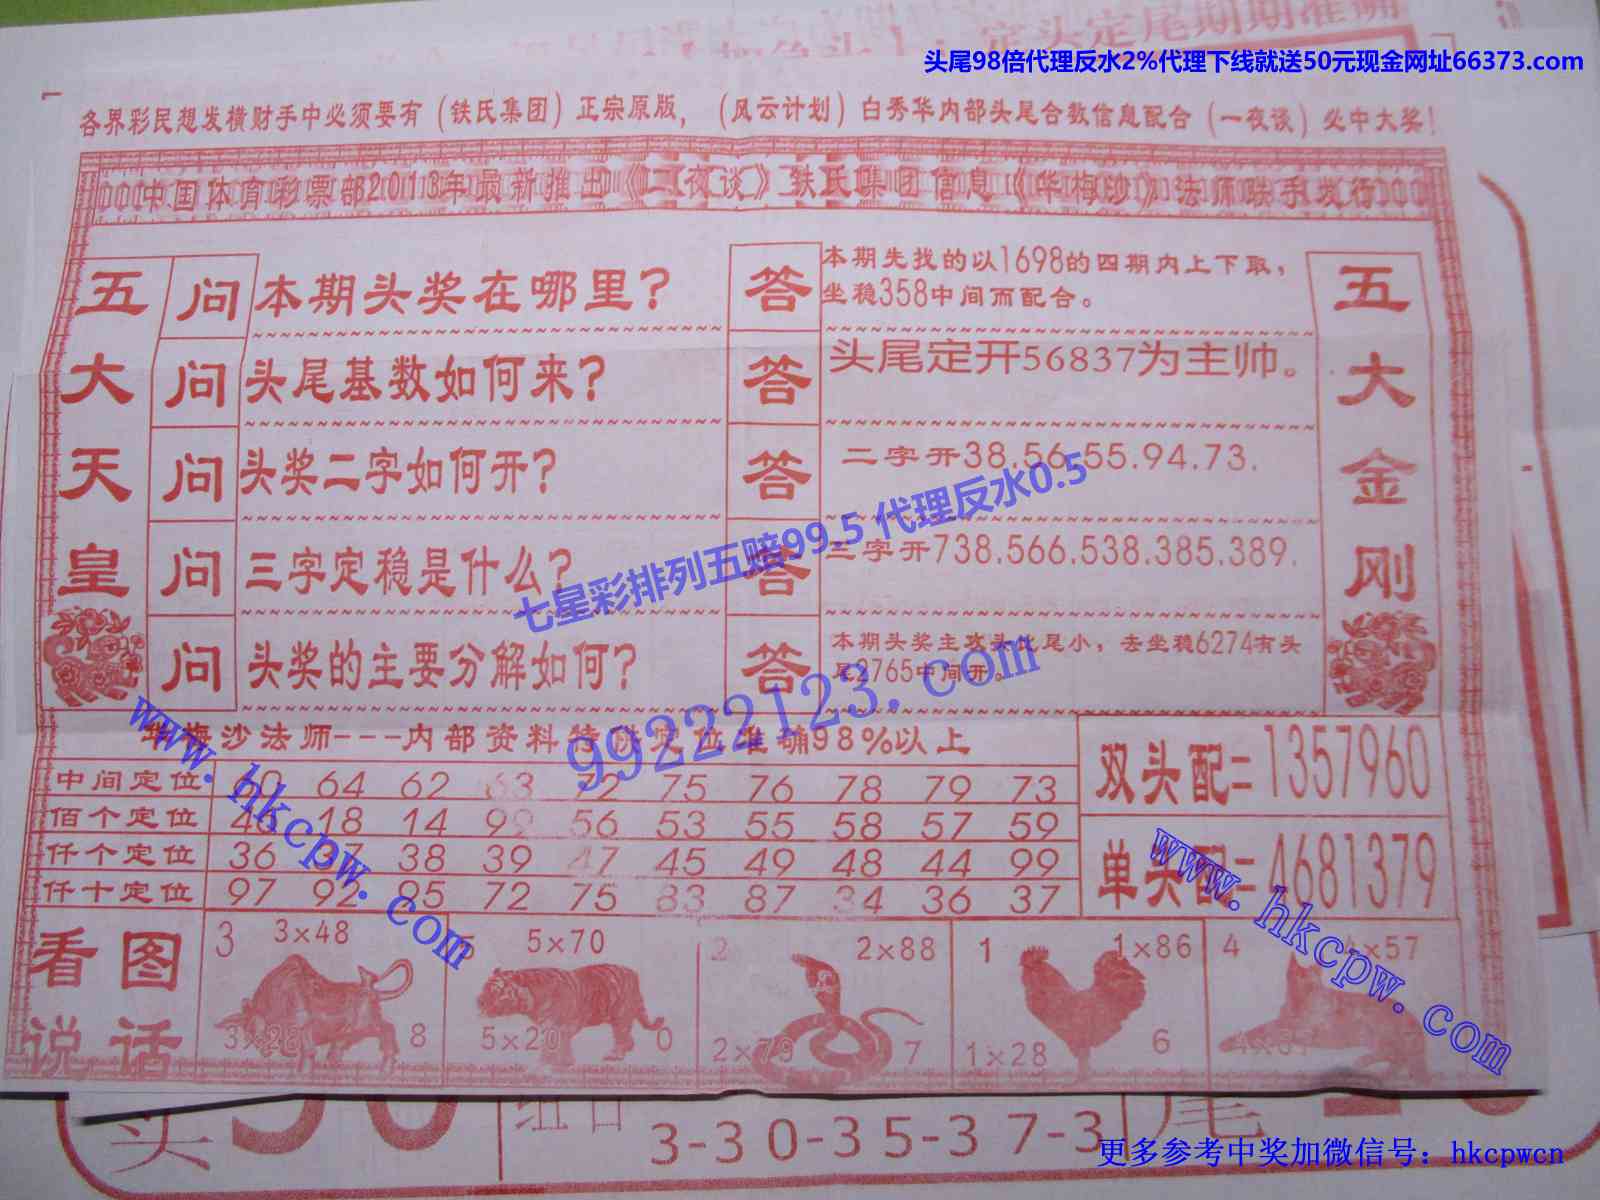 定头定尾期期准确
头尾98倍代理反水2%代理下线就送50元现金网址66373.com
各界彩民想发横财手中必须要有（铁氏集团）正宗原版，（风云计划）白秀华内部头尾合数信息配合（一夜谈）必中大奖！
中国体育彩票部2013年最新推出《一夜谈》铁氏集团信息《华梅沙》法师联手发行
五大天皇
问 本期头奖在哪里？
答 本期先找的以1698的四期内上下取，
坐稳358中间而配合。
问 头尾基数如何来？
答 头尾定开56837为主帅。
问 头奖二字如何开？
答 二字开38.56.55.94.73.
问 三字定稳是什么？
答 三字开738.566.538.385.389.
问 头奖的主要分解如何？
答 本期头奖主攻头比尾小，去坐稳6274有头
尾2765中间开。
五大金刚
七星彩排列五赔99.5 代理反水0.5
99222123.com
华梅沙法师---内部资料特供定位准确98%以上
中间定位 60 64 62 63 72 75 76 78 79 73
佰个定位 46 18 14 99 56 53 55 58 57 59
仟个定位 36 37 38 39 47 45 49 48 44 99
仟十定位 97 92 85 72 75 83 87 34 36 37
双头配=1357960
单头配=4681379
www.hkcpw.com
www.hkcpw.com
看图
说话
3 3×48
3×28 8
5 5×70
5×20 0
2 2×88
2×79 7
1 1×86
1×28 6
4 4×57
头 组合 尾
3-30-35-37-3
更多参考中奖加微信号：hkcpwcn